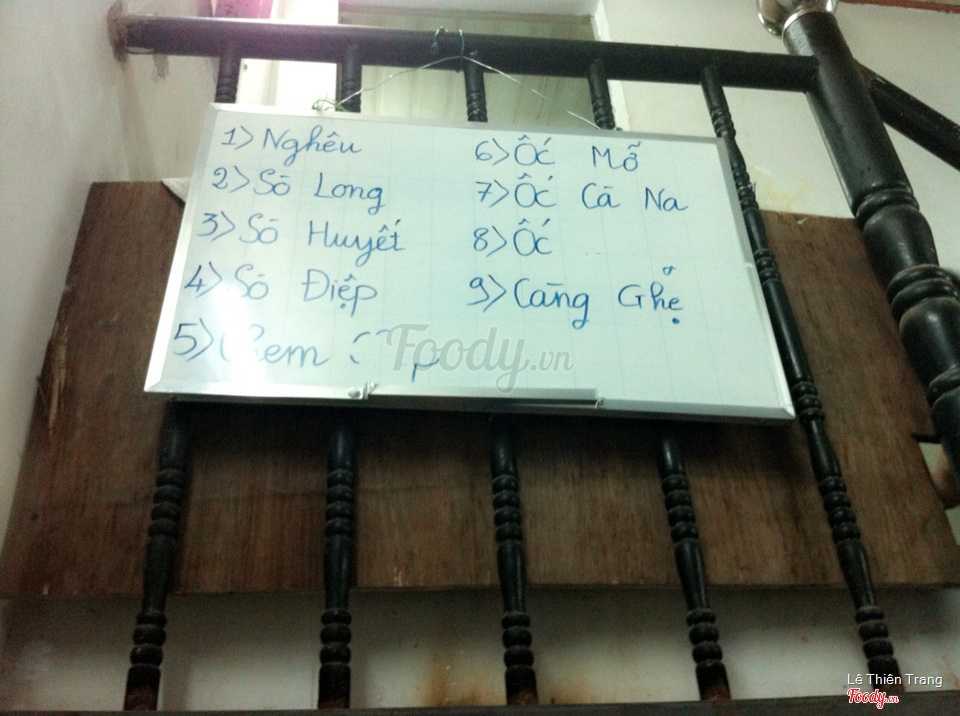 1> Nghêu
2> Sò Long
3> Sò Huyết
4> Sò Điệp
5> Chem
6> Ốc Mỡ
7> Ốc Cà Na
8> Ốc
9> Càng Ghẹ
Foody.vn
Lê Thiên Trang
Foody.vn